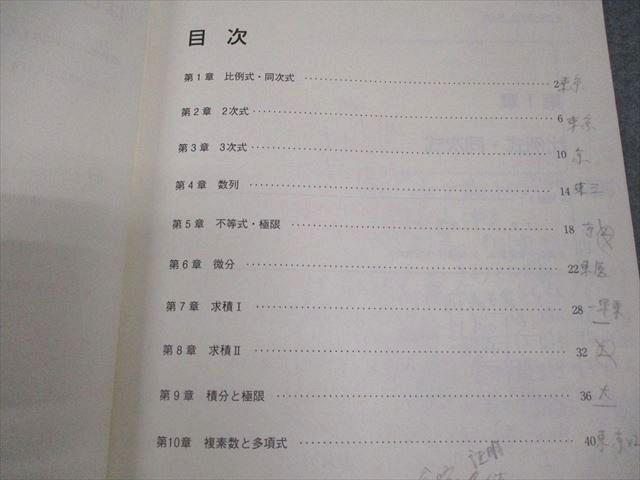 目 次
第1章 比例式・同次式 ……… 2 東京
第2章 2次式 ……… 6 東京
第3章 3次式 ……… 10 京
第4章 数列 ……… 14 東工
第5章 不等式・極限 ……… 18 京
第6章 微分 ……… 22 東医
第7章 求積Ⅰ ……… 28 一早東
第8章 求積Ⅱ ……… 32
第9章 積分と極限 ……… 36 大
第10章 複素数と多項式 ……… 40 東京x2
証明